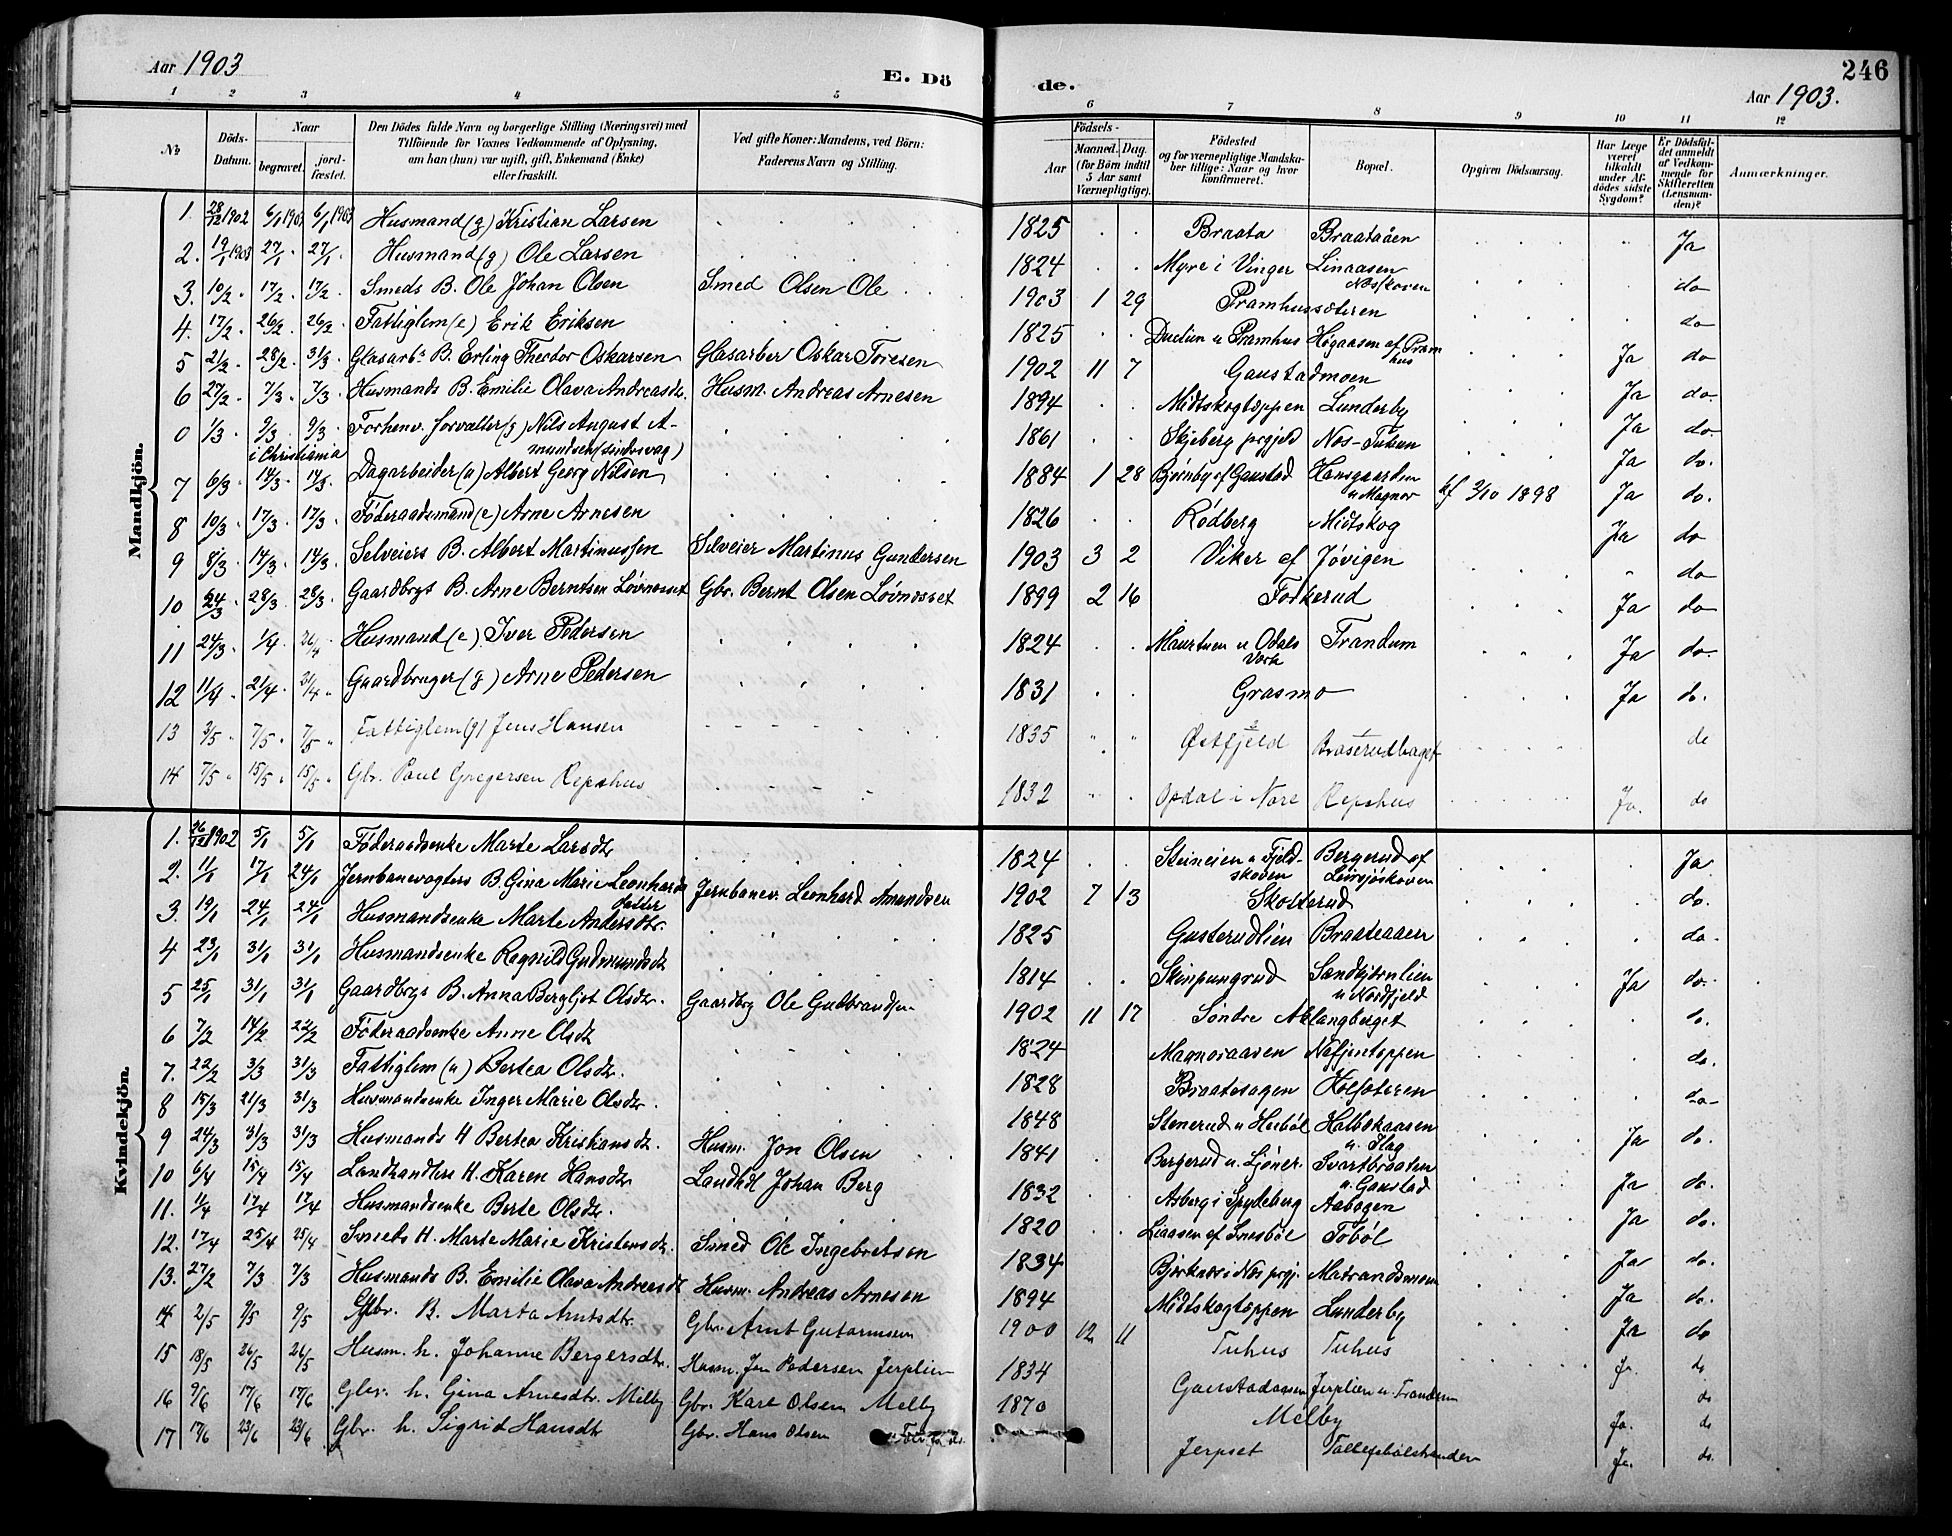 Aar 1903
E. Dö
de.
246
Aar 1903.
1 2 3 4 5 6 7 8 9 10 11 12
№
Döds-Datum.
Naar
begravet.
jord-fæstet.
Den Dödes fulde Navn og borgerlige Stilling (Næringsvei) med
Tilföiende for Voxnes Vedkommende af Oplysning,
om han (hun) var ugift, gift, Enkemand (Enke)
eller fraskilt.
Ved gifte Koner: Mandens, ved Börn:
Faderens Navn og Stilling.
Födsels-
Aar
Maaned. Dag.
(for Börn indtil 5 Aar samt Værnepligtige).
Födested
og for værnepligtige Mandskaber tillige: Naar og hvor konfirmeret.
Bopæl.
Opgiven Dödsaarsag.
Har Læge været tilkaldt under Afdödes sidste Sygdom?
Er Dödsfaldet anmeldt af Vedkommende for Skifteretten (Lensmanden)?
Anmærkninger.
Mandkjön.
1. 28/12 1902 6/1 1903 6/1 1903 Husmand (g) Kristian Larsen 1825 Braata Braataåen Ja
2. 19/1 1903 27/1 27/1 Husmand (g) Ole Larsen 1824 Myre i Vinger Linaasen Næsskoven do
3. 10/2 17/2 17/2 Smeds B. Ole Johan Olsen Smed Olsen Ole 1903 1 29 Pramhussæteren do
4. 17/2 26/2 26/2 Fattiglem (e) Erik Eriksen 1825 u Pramhus Högaasen af Pramhus Ja do
5 21/2 28/2 31/3 Glasarb. B. Erling Theodor Oskarsen Glasarber Oskar Toresen 1902 11 7 Gaustadmoen Ja do
6 27/2 7/3 7/3 Husmands B. Emilie Olava Andreasdt. Husm. Andreas Arnesen 1894 Midtskogtoppen Lunderby Ja do
0 1/3 9/3 9/3 i Christiania Forhenv. forvalter (g) Nils August Amundsen 1861 Skjeberg prgjeld Nos-Tuhun Ja do.
7 6/3 14/3 14/3 Dagarbeider (u) Albert Georg Nilsen 1884 1 28 Bjørnby af Gaustad Hansgaarden u Magnor kf 2/10 1898 Ja do.
8 10/3 17/3 17/3 Föderaadsmand (e) Arne Arnesen 1826 Rödberg Midtskog Ja do
9 8/3 14/3 14/3 Selveiers B. Albert Martinussen Selveier Martinus Gundersen 1903 3 2 Viker af Jøvigen do
10 24/3 28/3 28/3 Gaardbrgs B. Arne Berntsen Løvnæset Gbr. Bernt Olsen Løvnæset 1899 2 16 Forkerud Ja do
11 24/3 1/4 26/4 Husmand (e) Iver Pedersen 1824 u Odals Værk Trandum Ja do.
12 11/4 21/4 21/4 Gaardbruger (g) Arne Pedersen 1831 Grasmo Ja do.
13 3/5 7/5 7/5 Fattiglem (g) Jens Hansen 1835 Østfjeld Braserudhaget do
14 7/5 15/5 15/5 Gbr. Paul Gregersen Repshus 1832 Opdal i Nore Repshus Ja. do
Kvindekjön.
1. 26/12 1902 5/1 5/1 Föderaadsenke Marte Larsdtr 1824 Steineien u Fjeldskoven Bergerud af Leirsjöskoven Ja
2. 11/1 17/1 24/1 Jernbanevogters B. Gina Marie Leonhardsdatter Jernbanev. Leonhard Amundsen 1902 7 13 Skotterud do.
3. 19/1 24/1 24/1 Husmandsenke Marte Andersdtr. 1825 Gusterudlien Braateaaen do.
4 23/1 31/1 31/1 Husmandsenke Ragnild Gudmundsdt 1814 Skinpungrud Sandbjörnlien u Nordfjeld Ja do.
5 25/1 31/1 31/1 Gaardbrgs B. Anna Bergljot Olsdtr. Gaardbrg Ole Gulbrandsen 1902 11 17 Søndre Aklangberget do.
6 7/2 14/2 22/2 Föderaadsenke Anne Olsdt 1824 Magnoraasen do.
7. 22/2 3/3 31/3 Fattiglem (u) Bertea Olsdtr. 1828 Braatesagen do
8 15/3 21/3 31/3 Husmandsenke Inger Marie Olsdtr. 1848 Stenerud u Helböl u. Flag Ja do.
9 24/3 31/3 31/3 Husmands H Bertea Kristiansdt. Husm. Jon Olsen 1841 Bergerud u. Svartbraaten u. Gaustad Ja do.
10 6/4 15/4 15/4 Landhandlers H. Karen Hansdtr Landhdl Johan Berg 1832 Asberg i Spydeberg Aabogen Ja do.
11. 11/4 17/4 17/4 Husmandsenke Berte Olsdtr. 1820 Liaasen af Tobøl Ja do.
12. 17/4 25/4 25/4 Smeds H. Marte Marie Kristensdt. Smed Ole Ingebretsen 1834 Björknæs i Næs prgj. Matrandsmoen Ja do.
13. 27/2 7/3 7/3 Husmands B. Emilie Olava Andreasdt Husm. Andreas Arnesen 1894 Midtskogtoppen Lunderby Ja do
14 2/5 9/5 9/5 Gbr. B. Marta Arntsdtr. Gbr. Arnt Gutormsen 1900 12 11 Tuhus Tuhus Ja. do
15 18/5 26/5 26/5 Husm. h. Johanne Bergersdtr. Husm. Jon Pedersen Jerplien 1834 Gaustadaasen Jerplien u. Trandum do
16 9/6 17/6 17/6 Gbr. h. Gina Arnesdtr. Melby Gbr. Karl Olsen Melby 1870 Melby Ja. do
17 17/6 23/6 23/6 Gbr. h. Sigrid Hansdtr Gbr. Hans Olsen Jerpset Ja. do.